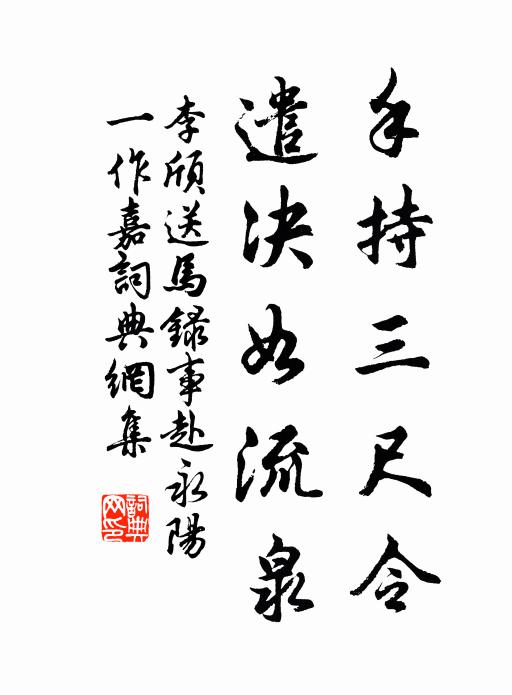 手持三尺令
遣决如流泉
李頎送馬錄事赴永陽
一作嘉詞典網集
詞典網印